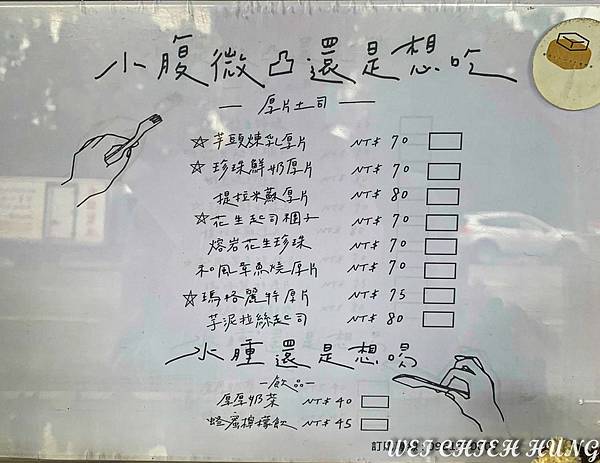 小腹微凸還是想吃
— 厚片土司 —
☆芋頭煉乳厚片 NT$ 70
☆珍珠鮮奶厚片 NT$ 70
提拉米蘇厚片 NT$ 80
☆花生起司粿子 NT$ 70
熔岩花生珍珠 NT$ 70
和風章魚燒厚片 NT$ 70
☆瑪格麗特厚片 NT$ 75
芋泥拉絲起司 NT$ 80
水腫還是想喝
—飲—
厚厚奶茶 NT$ 40
蜂蜜檸檬飲 NT$ 45
WEI CHIEH HUNG